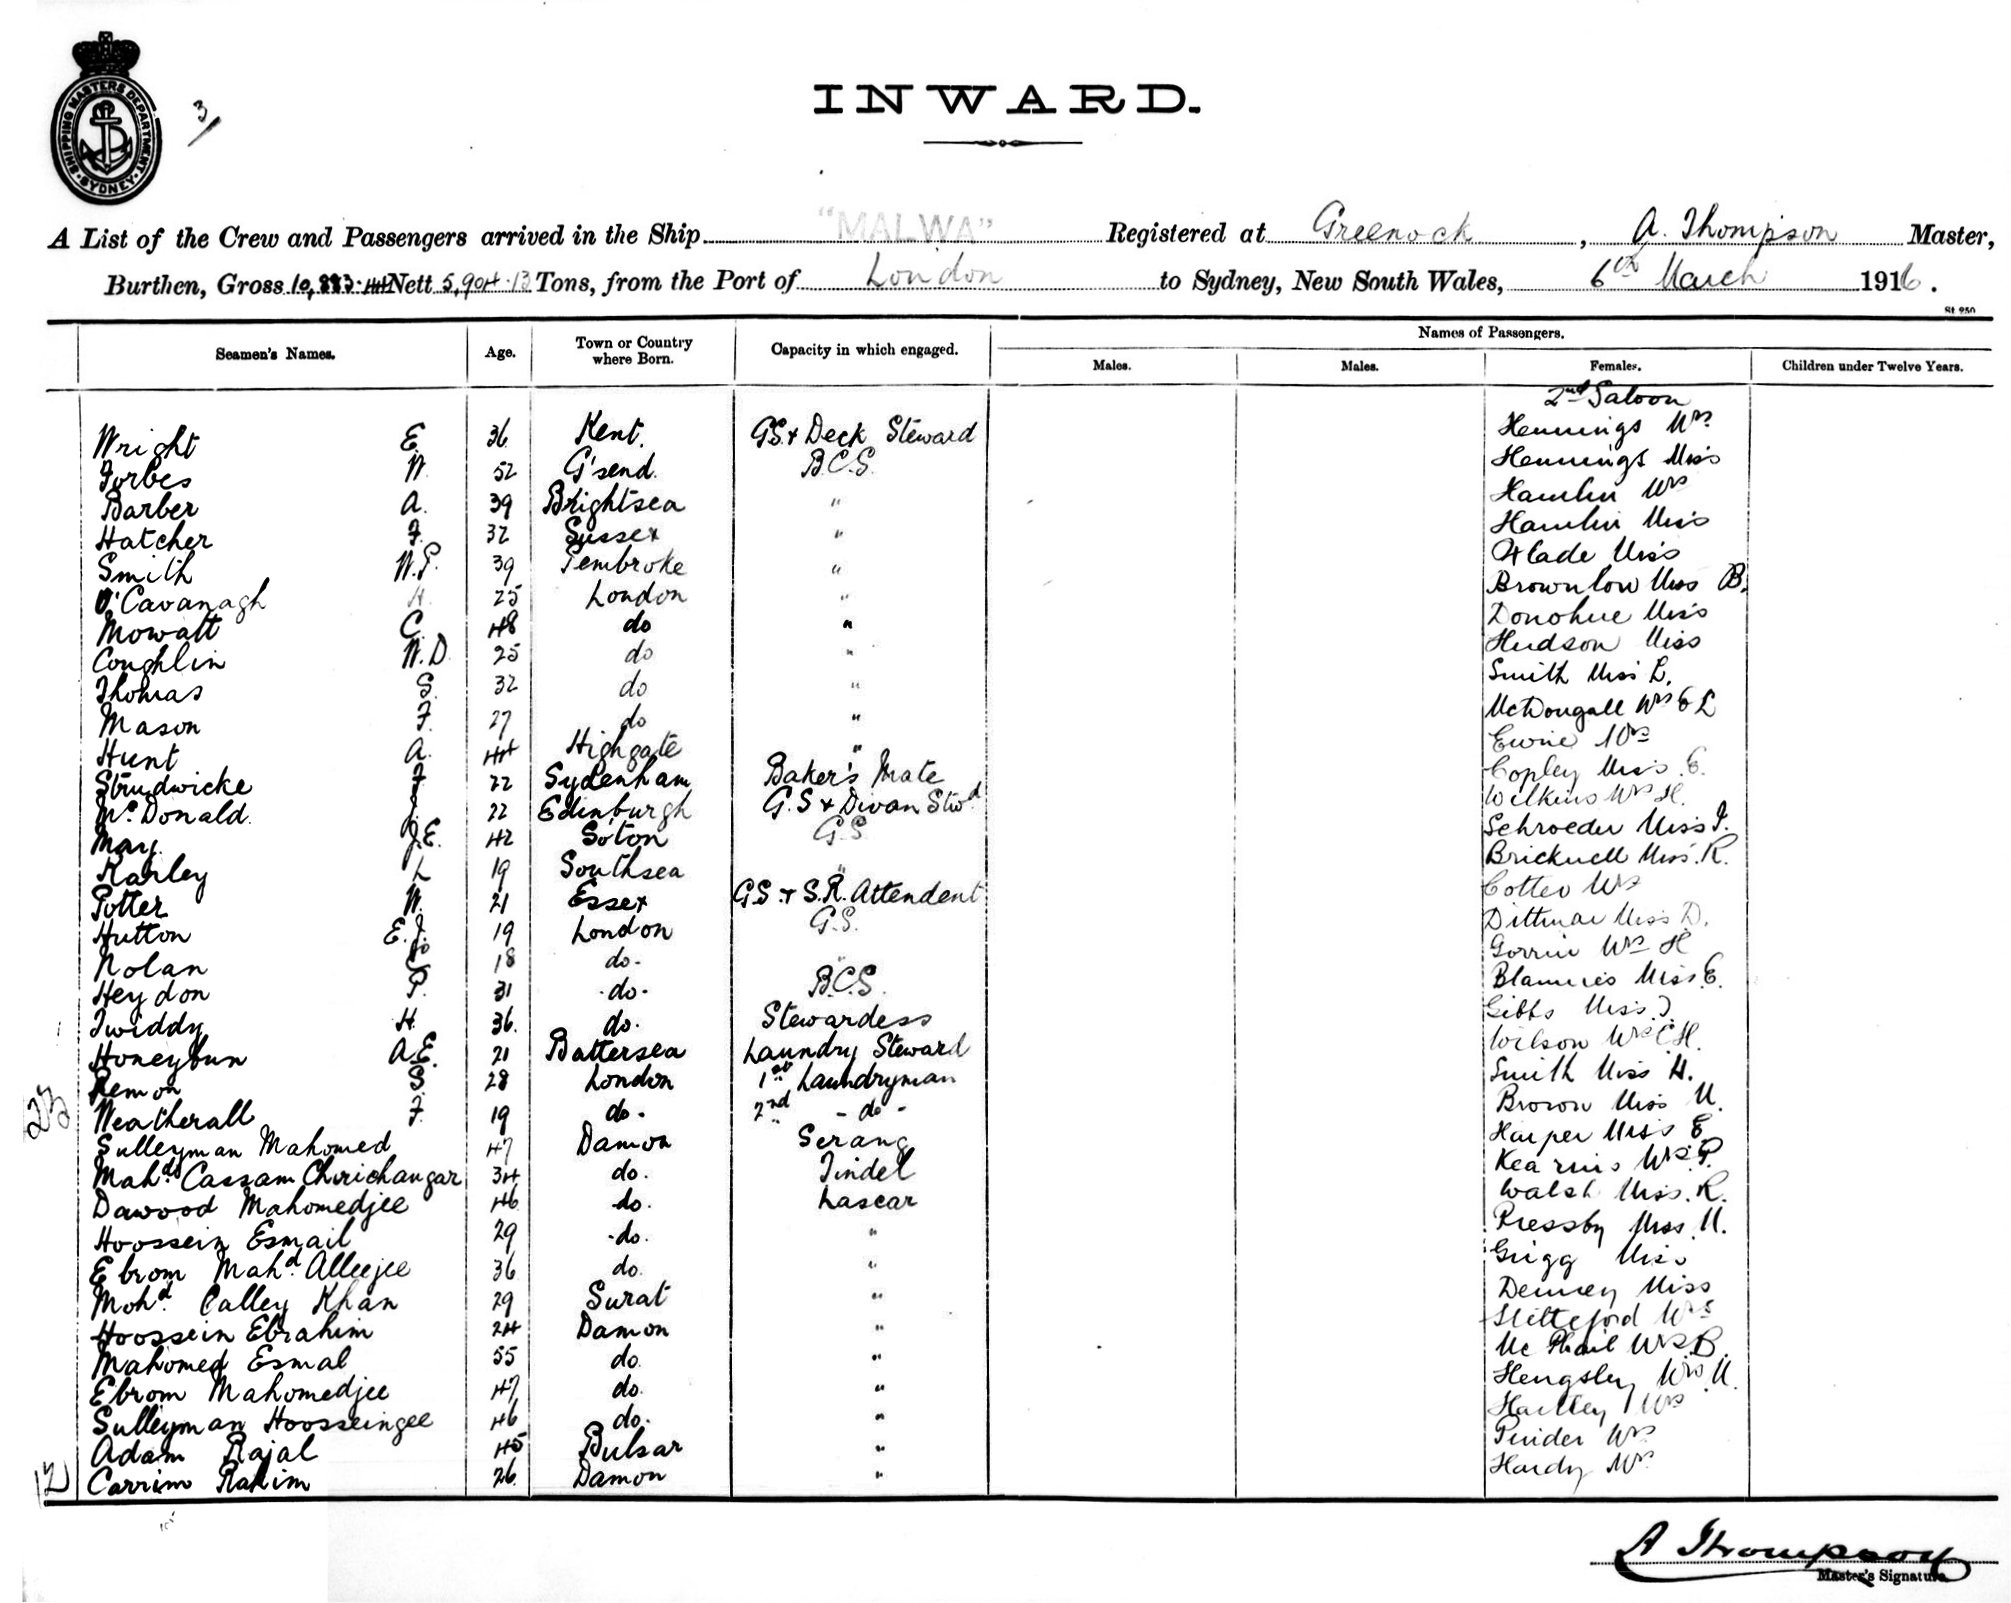 SHIPPING MASTERS DEPARTMENT
SYDNEY
3/
INWARD.
A List of the Crew and Passengers arrived in the Ship "MALWA" Registered at Greenock, A. Thompson Master,
Burthen, Gross Nett 5,904.13 Tons, from the Port of London to Sydney, New South Wales, 6th March 1916.
St 950
Seamen's Names. Age. Town or Country where Born. Capacity in which engaged. Names of Passengers.
Males. Males. Females. Children under Twelve Years.
2nd Saloon
Wright E. 36 Kent. G.S. + Deck Steward Hennings Mrs
Forbes W. 52 G'send. B.C.S. Hennings Miss
Barber A. 39 Brightsea " Hamlin Mrs
Hatcher F. 32 Sussex " Hamlin Miss
Smith W.P. 39 Pembroke " Miss
O'Cavanagh H. 25 London " Brownlow Miss B.
Mowatt C. 48 do " Donohue Miss
Coughlin W.D. 25 do " Hudson Miss
Thomas S. 32 do " Smith Miss L.
Mason F. 27 do " McDougall Mrs E L
Hunt A. 44 Highgate " Ewine Mrs
Strudwicke F. 22 Sydenham Baker's Mate Copley Miss. E.
McDonald. J. 22 Edinburgh G.S + Divan Stwd Wilkins Mrs H.
May. J.E. 42 So'ton G.S Schroeder Miss I.
Karley L 19 Southsea " Bricknell Miss. R.
Potter W. 21 Essex G.S + S.R. Attendent Cotter Mrs
Hutton E.J. 19 London G.S. Dittmar Miss D.
Nolan 18 do. " Gorrin Mrs H
Heydon P. 31 do. B.C.S. Miss E.
Twiddy H. 36. do. Stewardess Gibbs Miss
Honeybun A.E. 21 Battersea Laundry Steward Wilson Mrs C H.
Remon S. 28 London 1st Laundryman Smith Miss H.
23 Weatherall F. 19 do. 2nd - do - Brown Miss M.
Sulleyman Mahomed 47 Damon Serang Harper Miss E
Mahd. Cassam Chirichangar 34 do. Tindel Kearins Mrs P.
Dawood Mahomedjee 46 do. Lascar Walsh Miss. R.
Hoossein Esmail 29 do. " Pressby Miss M.
Ebrom Mahd. Alleejee 36 do. " Grigg Miss
Mohd Calley Khan 29 Surat " Denney Miss
Hoossein Ebrahim 24 Damon " Mrs
Mahomed Esmal 55 do. " Mc Phail Mrs B.
Ebrom Mahomedjee 47 do. " Hengsley Mrs M.
Sulleyman Hoosseingee 46 do. " Hartley Mrs
Adam Rajal 45 Bulsar " Pinder Mrs
12 Carrim Rahim 26 Damon " Hardy Mrs
A Thompson
Master's Signature.